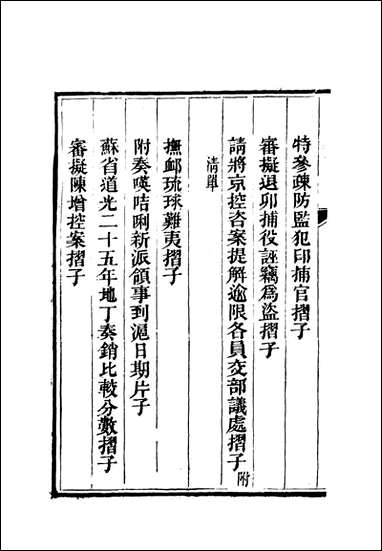 特參疎防監犯印捕官摺子
審擬退卯捕役誣竊爲盜摺子
請將京控咨案提解逾限各員交部議處摺子附
清單
撫卹琉球難夷摺子
附奏㗸咭唎新派領事到滬日期片子
蘇省道光二十五年地丁奏銷比較分數摺子
審擬陳增控案摺子